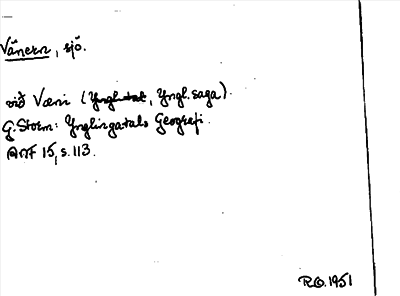 Vänern, sjö.
við Væni (Yngl.tal, Yngl.saga).
G. Storm: Ynglingatals Geografi.
ANF 15, s. 113.
R.O. 1951